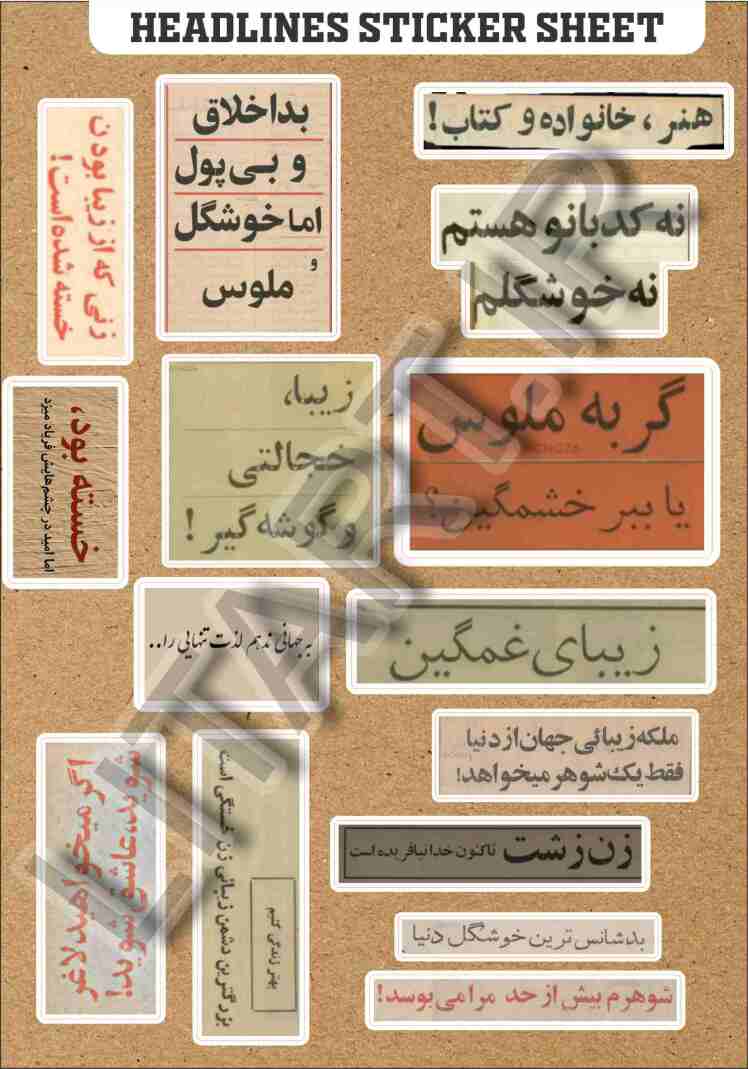 HEADLINES STICKER SHEET
بداخلاق
و بی‌پول
اما خوشگل
و
ملوس
هنر، خانواده و کتاب!
زنی که از زیبا بودن
خسته شده‌است!
نه کدبانو هستم
نه خوشگلم
زیبا،
خجالتی
و گوشه‌گیر!
گربه ملوس
یا ببر خشمگین؟
خسته بود،
اما امید در چشم‌هایش فریاد میزد
به جهانی ندهم لذت تنهایی را..
زیبای غمگین
ملکه زیبائی جهان از دنیا
فقط یک شوهر میخواهد!
اگر میخواهید لاغر
شوید، عاشق شوید!
بزرگترین دشمن زیبائی زن خستگی است
بهتر زندگی کنیم
زن زشت تاکنون خدا نیافریده است
بدشانس ترین خوشگل دنیا
شوهرم بیش از حد مرا می‌بوسد!
LITART.IR